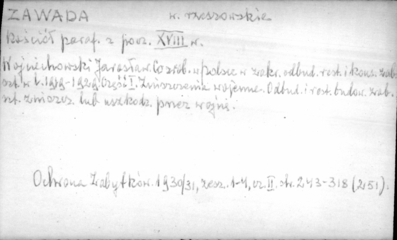 ZAWADA w. rzeszowskie
Kościół paraf. z pocz. XVIII w.
Wojciechowski Jarosław. Co zrob. w Polsce w zakr. odbud. rest. i kons. zab.
szt. w l. 1919-1929 Część I. Zniszczenia wojenne. Odbud. i rest. budow. zab.
szt. zniszcz. lub uszkodz. przez wojnę.
Ochrona Zabytków. 1930/31, zesz. 1-4, cz. II. str. 243-318 (251).